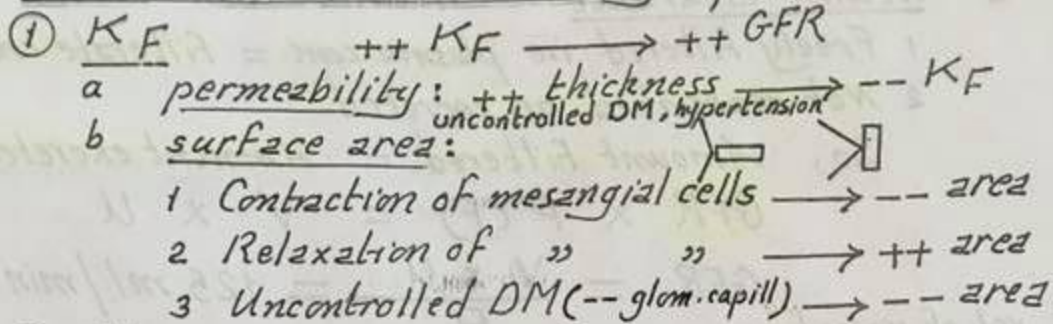 ① KF ++ KF → ++ GFR
a permeability: ++ thickness → -- KF
uncontrolled DM, hypertension
b surface area:
1 Contraction of mesangial cells → -- area
2 Relaxation of " " → ++ area
3 Uncontrolled DM (-- glom.capill) → -- area